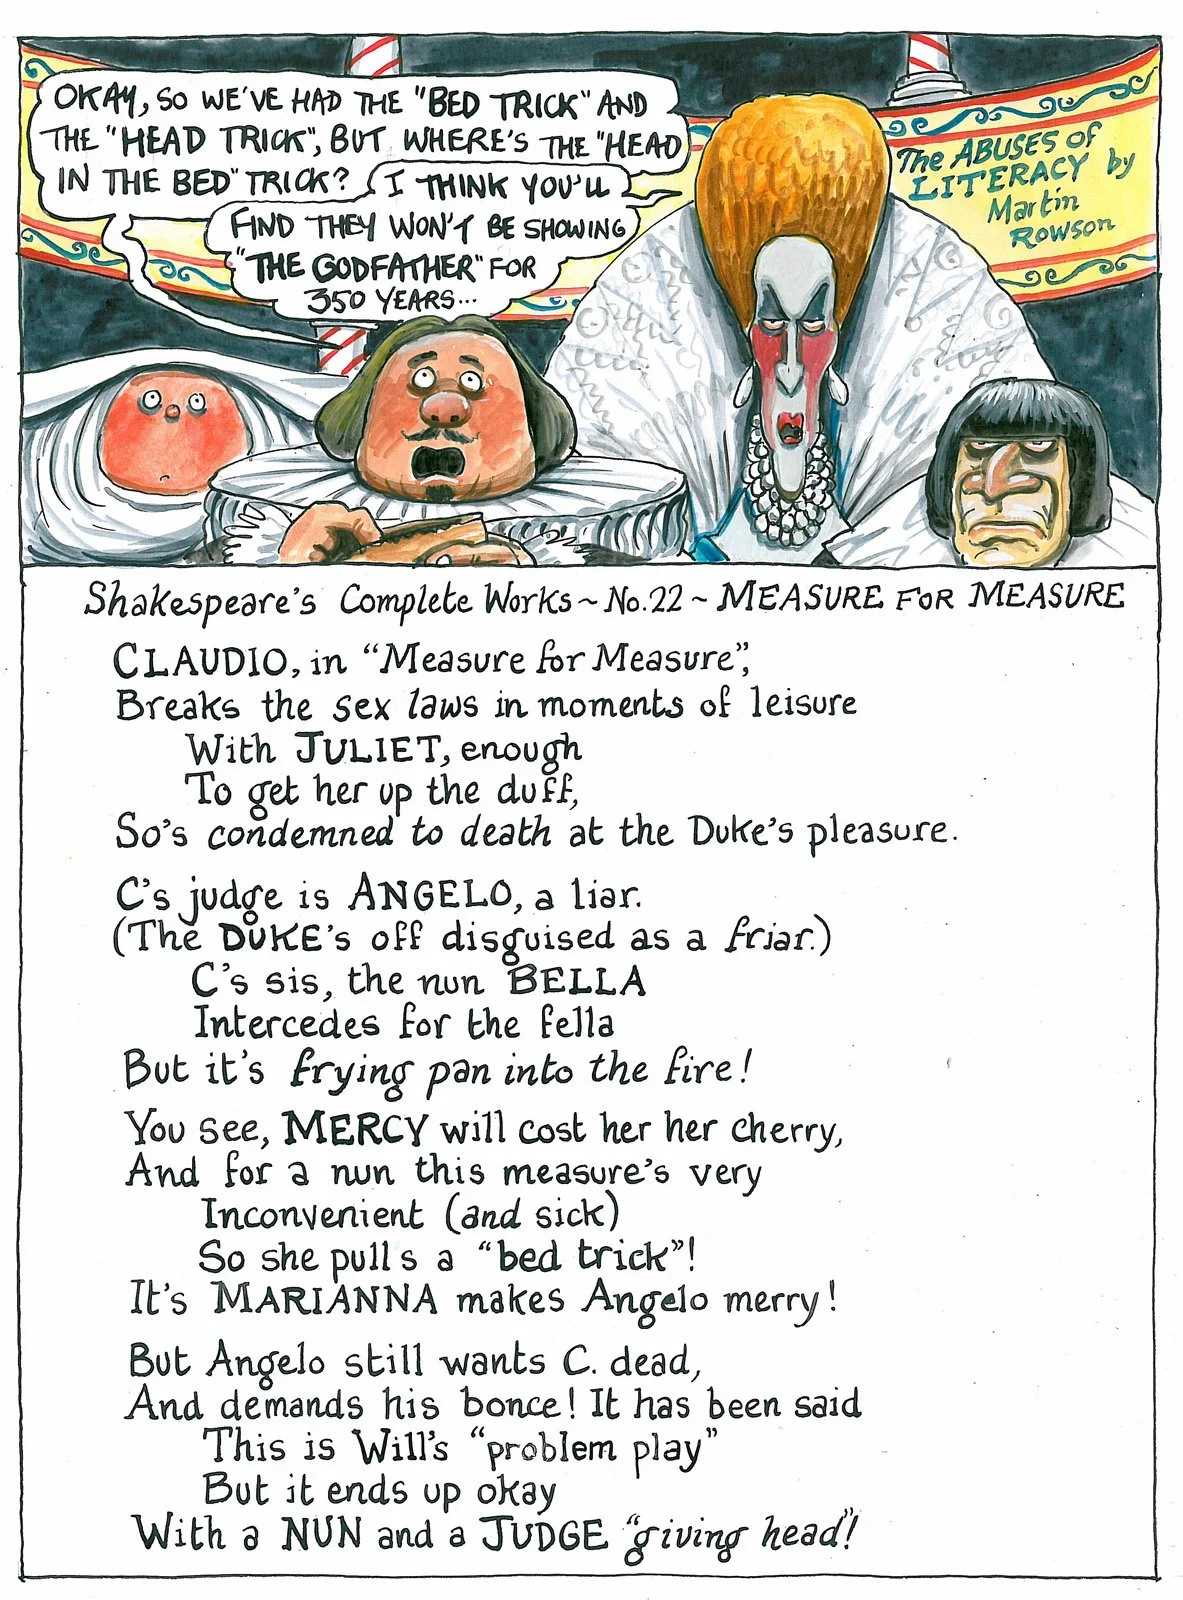 OKAY, SO WE'VE HAD THE "BED TRICK" AND
THE "HEAD TRICK", BUT WHERE'S THE "HEAD
IN THE BED" TRICK?
I THINK YOU'LL
FIND THEY WON'T BE SHOWING
"THE GODFATHER" FOR
350 YEARS...
The ABUSES of
LITERACY by
Martin
Rowson
Shakespeare's Complete Works ~ No. 22 ~ MEASURE FOR MEASURE
CLAUDIO, in "Measure for Measure",
Breaks the sex laws in moments of leisure
With JULIET, enough
To get her up the duff,
So's condemned to death at the Duke's pleasure.
C's judge is ANGELO, a liar.
(The DUKE's off disguised as a friar.)
C's sis, the nun BELLA
Intercedes for the fella
But it's frying pan into the fire!
You see, MERCY will cost her her cherry,
And for a nun this measure's very
Inconvenient (and sick)
So she pulls a "bed trick"!
It's MARIANNA makes Angelo merry!
But Angelo still wants C. dead,
And demands his bonce! It has been said
This is Will's "problem play"
But it ends up okay
With a NUN and a JUDGE "giving head"!